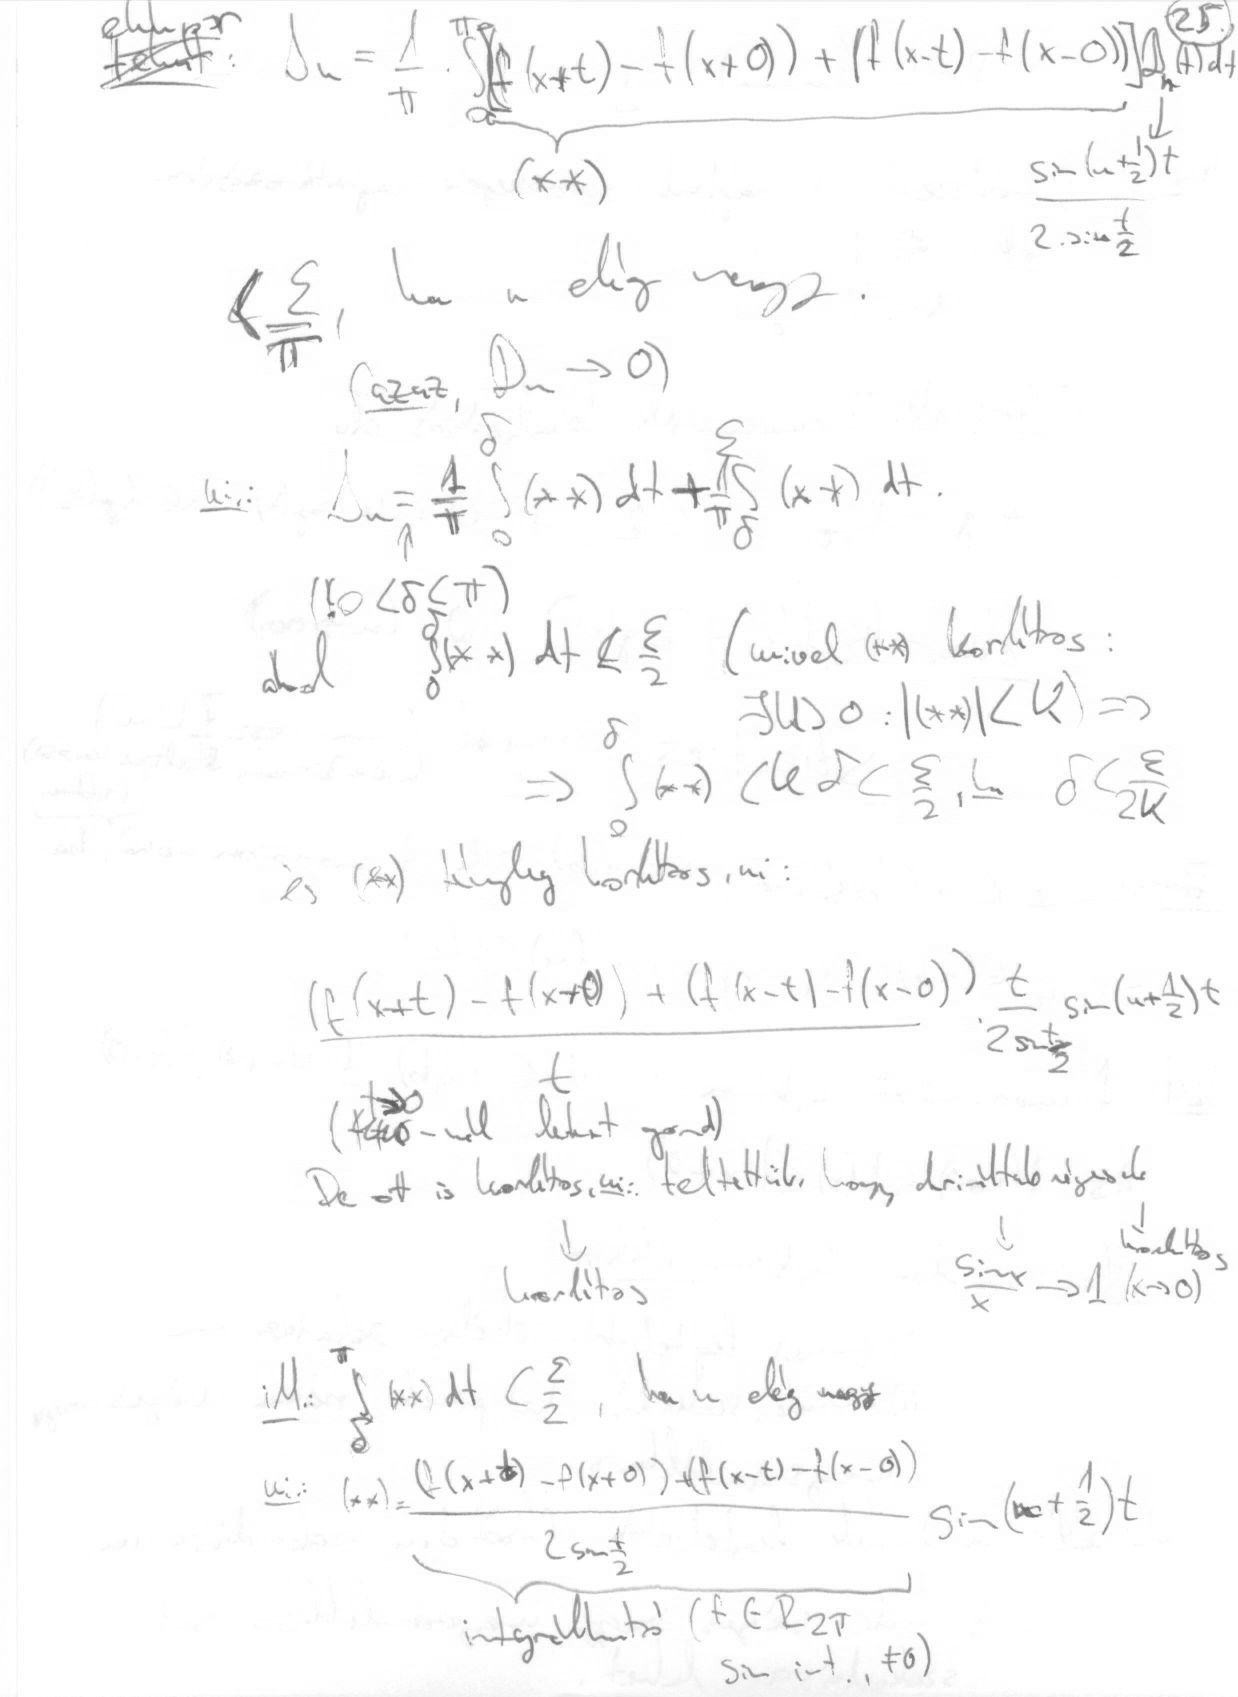 25.
ekkor : Δn = 1/π · ∫₀^π [(f(x+t) - f(x+0)) + (f(x-t) - f(x-0))] Dn(t) dt
(**)
↓
sin(n+1/2)t / 2·sin t/2
< ε/π, ha n elég nagy.
(azaz, Dn → 0)
ui.: Δn = 1/π ∫₀^δ (**) dt + 1/π ∫_δ^ε (**) dt.
↑
(! 0 < δ < π)
ahol ∫₀^δ (**) dt ≤ ε/2 (mivel (**) korlátos:
∃K>0 : |(**)| < K) ⇒
⇒ ∫₀^δ (**) < Kδ < ε/2, ha δ < ε/2K
és (**) tényleg korlátos, ui:
(f(x+t) - f(x+0)) + (f(x-t) - f(x-0)) / t · t / 2 sin t/2 sin(n+1/2)t
(t→0 -nál lehet gond)
De ott is korlátos, ui: feltettük, hogy
↓ ↓ ↓
korlátos sin x / x → 1 (x→0) korlátos
iM: ∫_δ^π (**) dt < ε/2, ha n elég nagy
ui: (**) = (f(x+t) - f(x+0)) + (f(x-t) - f(x-0)) / 2 sin t/2 sin(n+1/2)t
integrálható (f ∈ R₂π
sin int., ≠0)